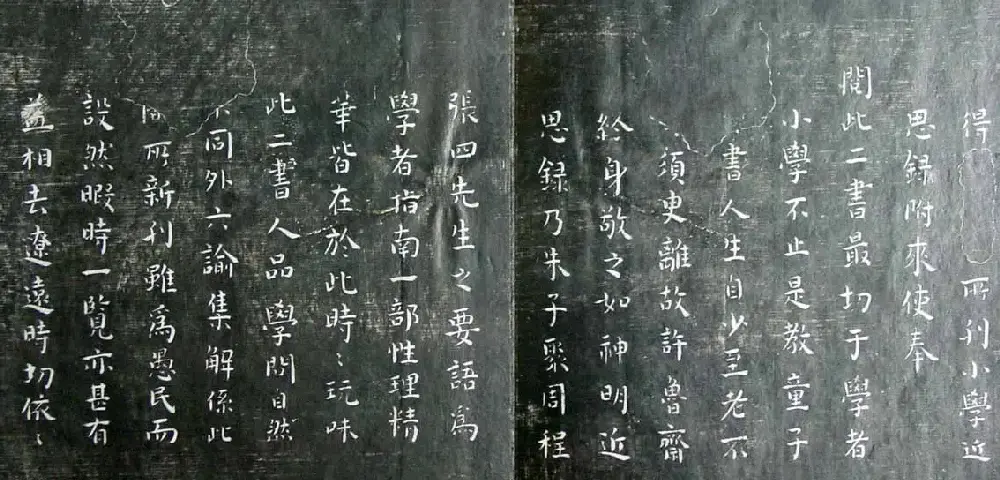 得所刊小學近
思録附來使奉
閲此二書最切于學者
小學不止是教童子
書人生自少至老不
須臾離故許魯齋
終身敬之如神明近
思録乃朱子聚周程
張四先生之要語爲
學者指南一部性理精
華皆在於此時〻玩味
此二書人品學問自然
不同外六諭集解係此
所新刊雖爲愚民而
設然暇時一覽亦甚有
益相去遼遠時切依〻